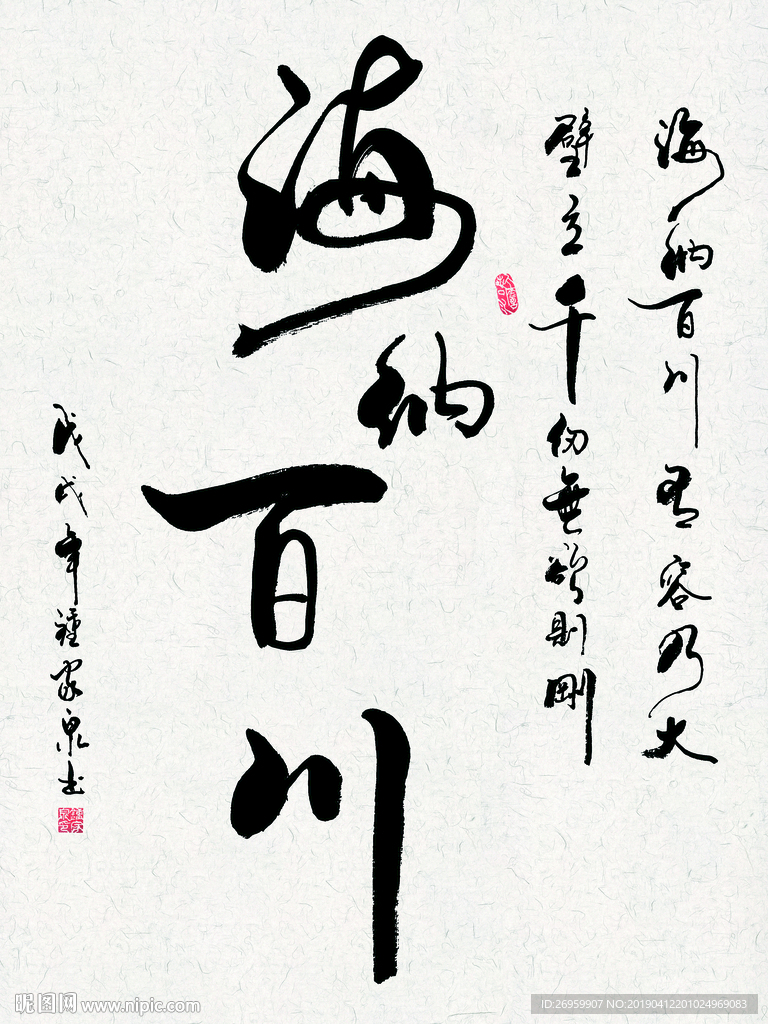 海納百川有容乃大
壁立千仞無欲則剛
海納百川
戊戌年種家泉書
昵图网 www.nipic.com
ID:26959907 NO:20190412201024969083